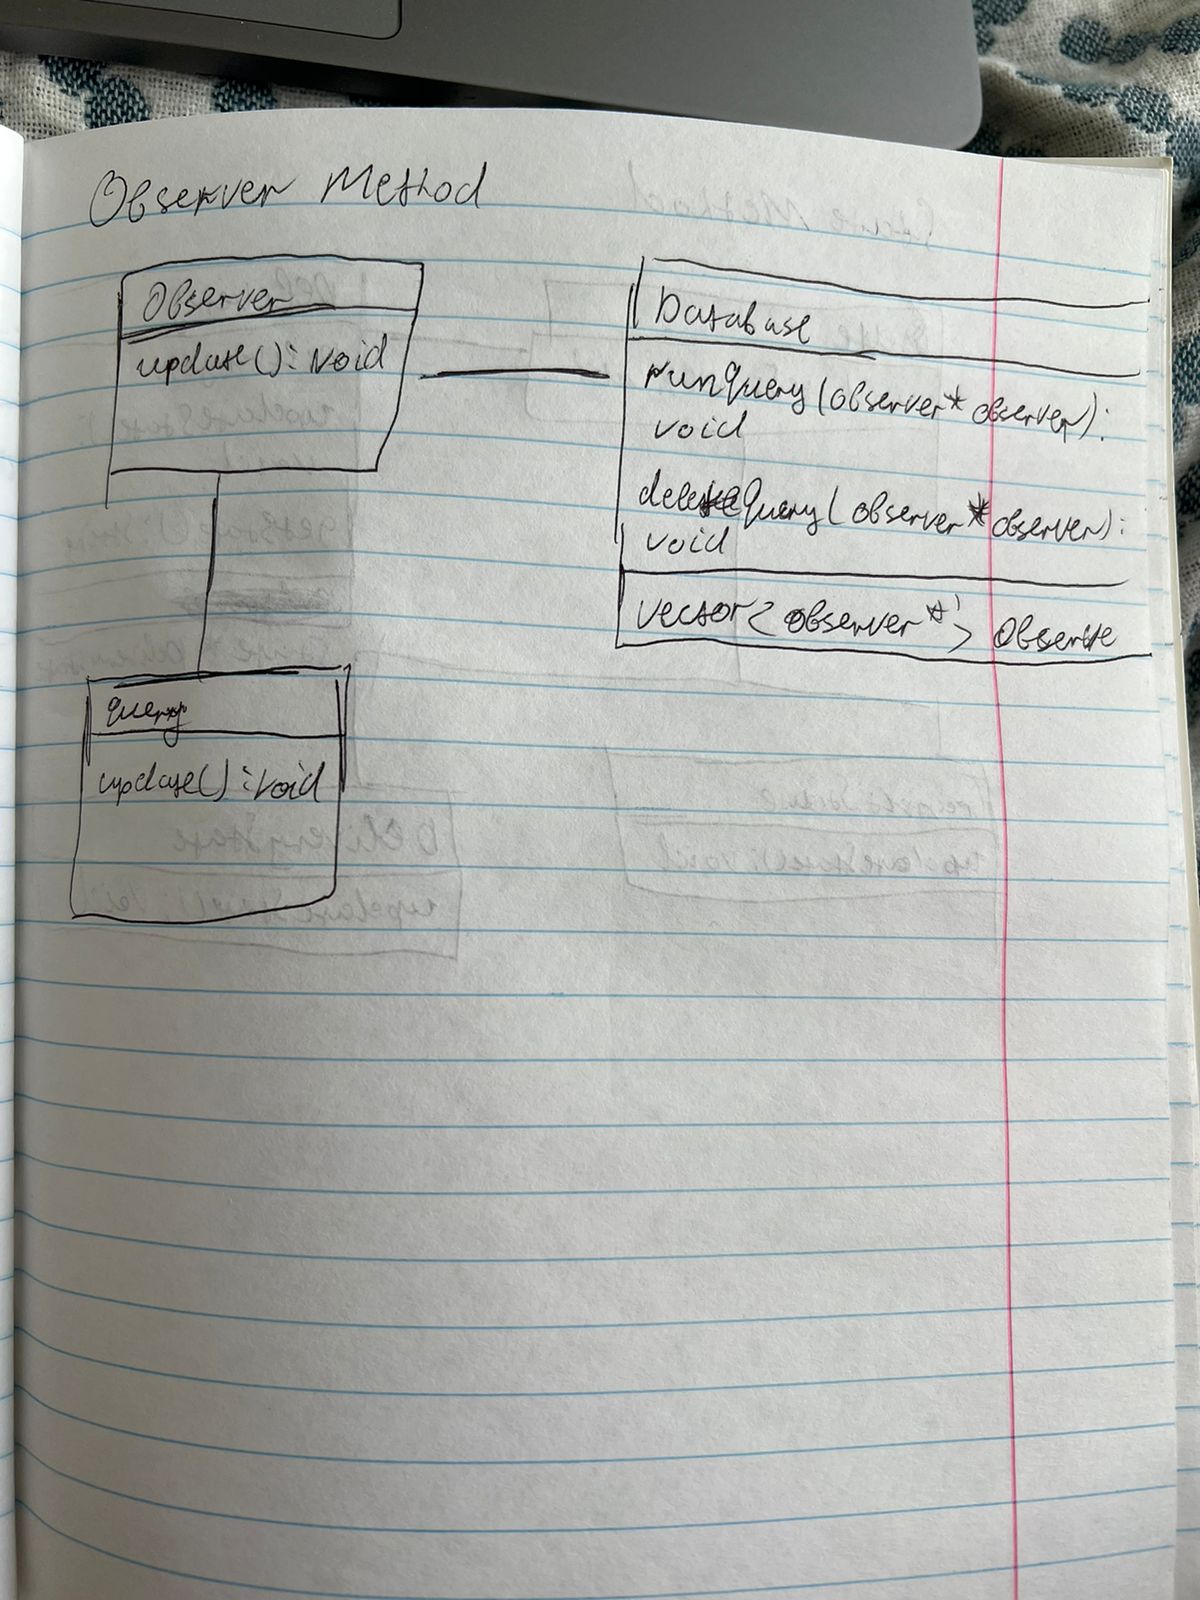 Observer Method
Observer
update(): void
Database
runQuery(observer* observer):
void
deleteQuery(observer* observer):
void
vector<observer*> Observe
query
update(): void